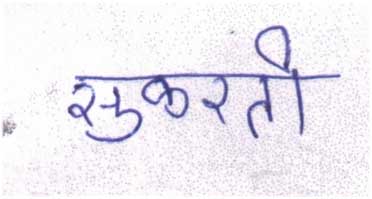 सुकरती